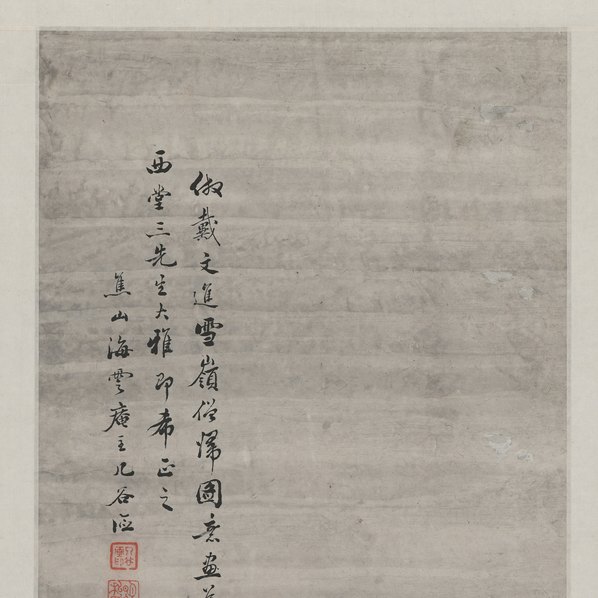 倣戴文進雪嶺僧歸圖意畫
西堂三先生大雅即希正之
焦山海雲庵主几谷